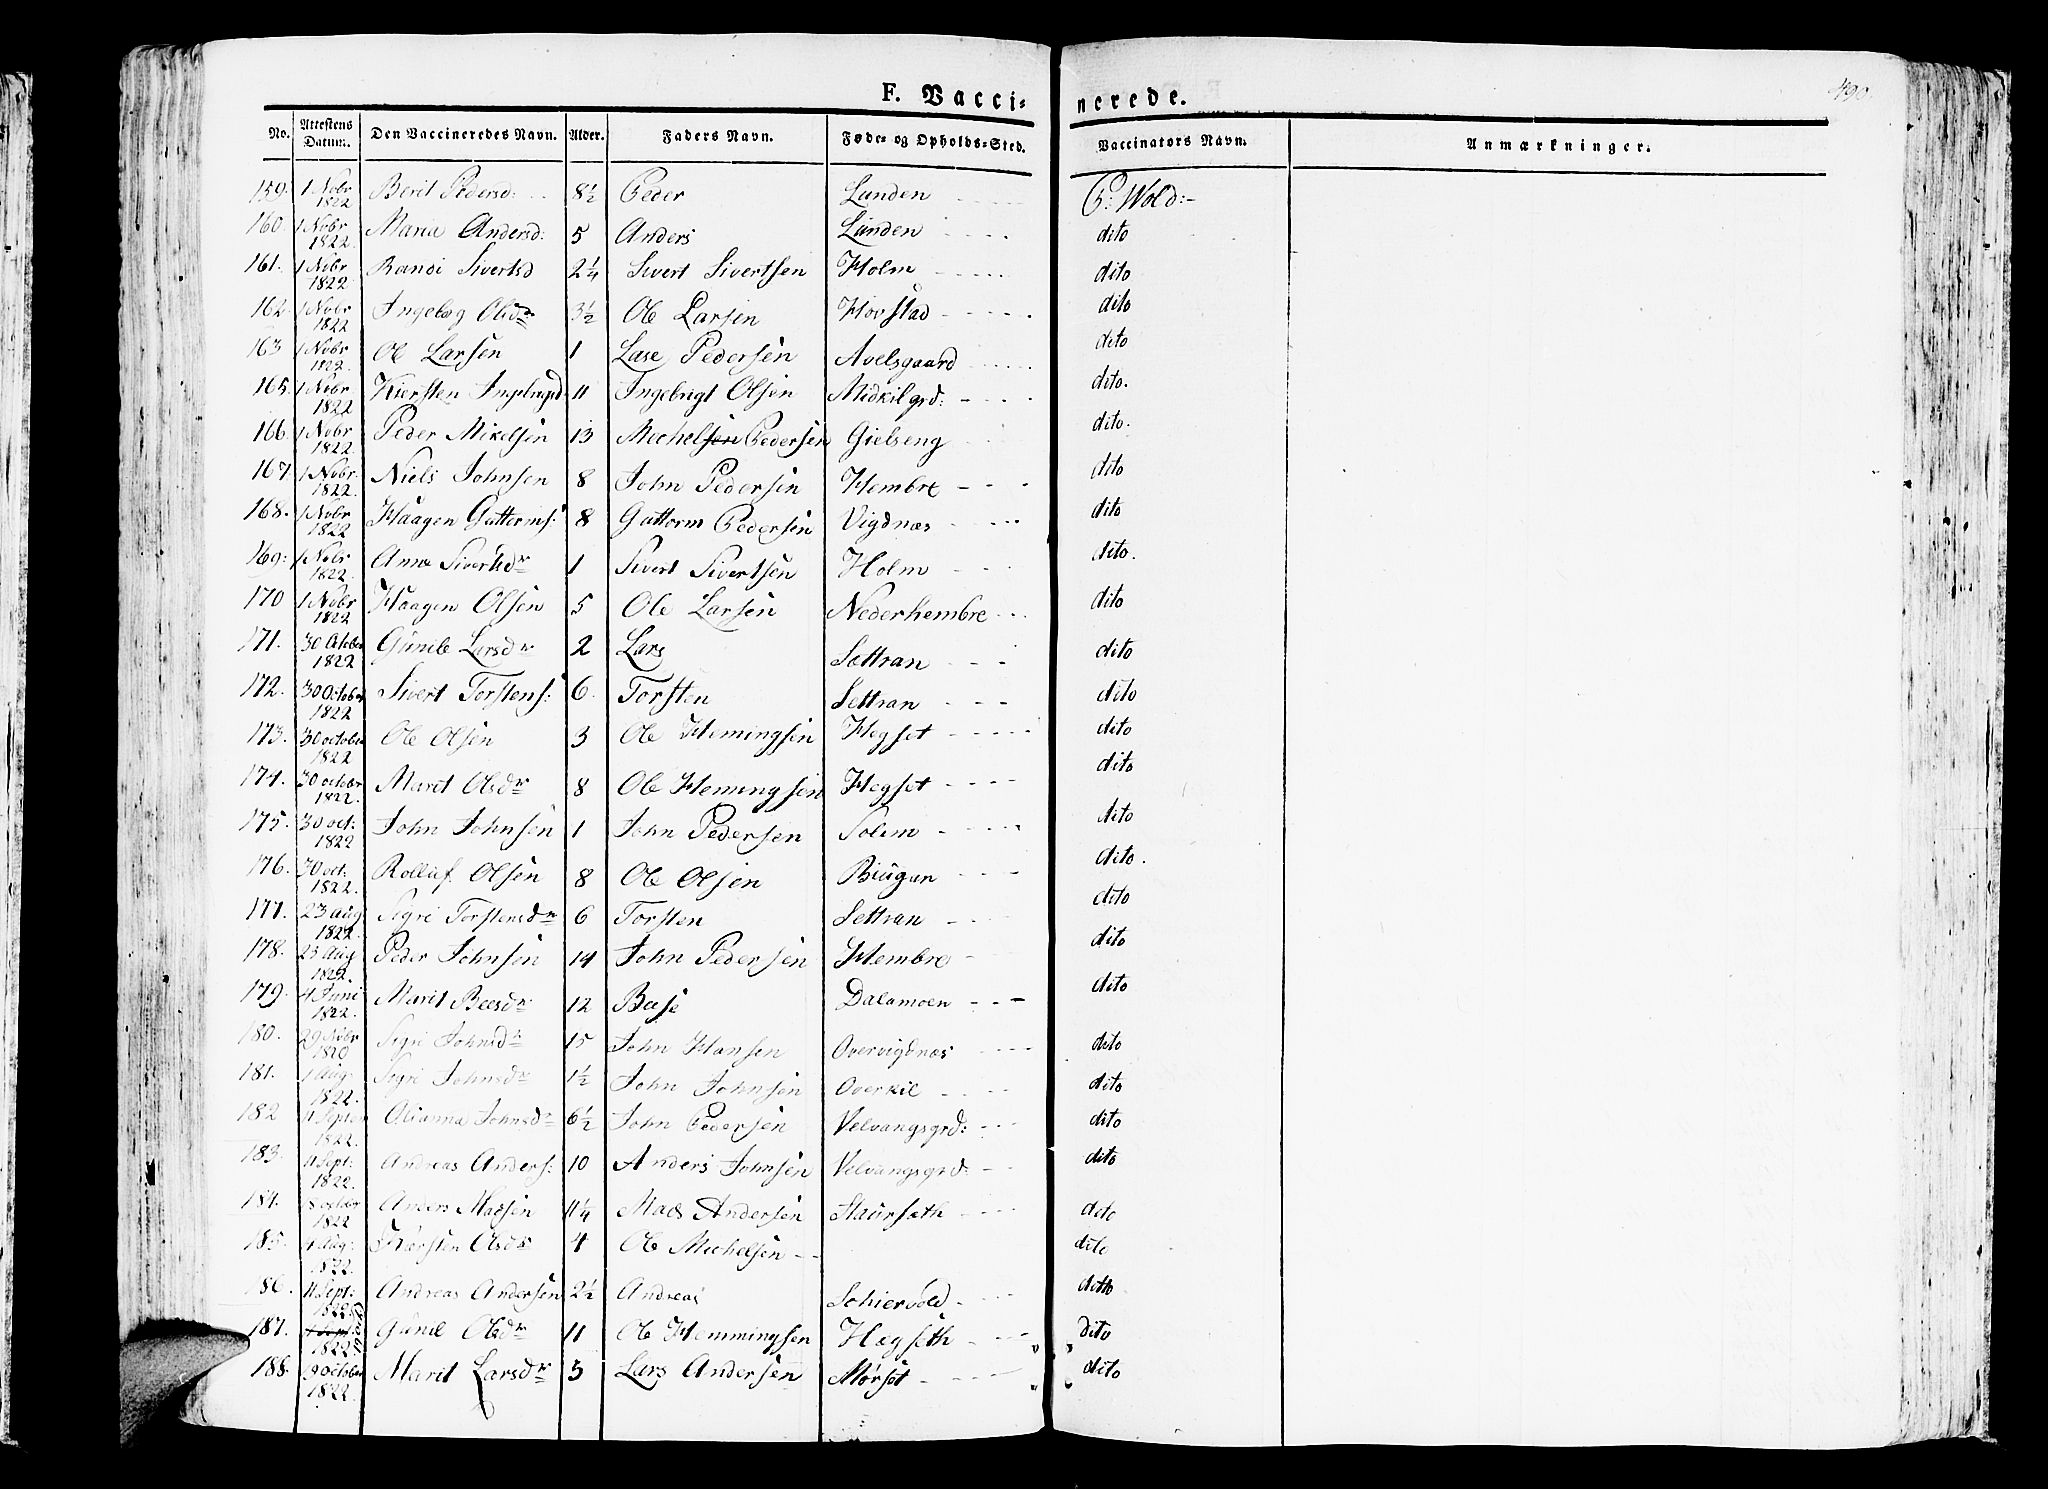 490.
F. Vacci= nerede.
No. Attestens Datum. Den Vaccineredes Navn. Alder. Faders Navn. Føde- og Opholds-Sted. Vaccinators Navn. Anmærkninger.
159. 1 Nobr 1822 Berit Pedersd: 8½ Peder Lunden P: Wold:-
160. 1 Nobr 1822. Maria Andersd: 5 Anders Lunden dito
161. 1 Nobr 1822 Randi Sivertsd 2¼ Sivert Sivertsen Holm dito
162. 1 Nobr 1822 Ingebog Olsdr 3½ Ole Larsen Hovstad dito
163 1 Nobr 1822. Ole Larsen 1 Lase Pedersen Avelsgaard dito
165. 1 Nobr 1822 Kiersten 11 Ingebrigt Olsen Midkilgrd: dito.
166. 1 Nobr 1822. Peder Mikelsen 13 Mechelsen Pedersen Gielseng dito.
167. 1 Nobr 1822. Niels Johnsen 8 John Pedersen Hembre dito
168. 1 Nobr 1822 Haagen Guttorms: 8 Guttorm Pedersen Vigdnæs dito
169: 1 Nobr 1822. Anne Sivertsdr 1 Sivert Sivertsen Holm dito.
170 1 Nobr 1822 Haagen Olsen 5 Ole Larsen Nederhembre dito
171. 30 October 1822 Gunile Larsdr 2 Lars Settran dito
172. 30 October 1822 Sivert Torstens: 6. Torsten Settran dito
173. 30 october 1822 Ole Olsen 3 Ole Hemingsen Hegset dito
174. 30 octobr 1822. Marit Olsdr 8 Ole Hemingsen Hegset dito
175. 30 oct: 1822 John Johnsen 1 John Pedersen Solem dito
176. 30 oct: 1822. Rolluf Olsen 8 Ole Olsen Biugan dito.
177. 23 Aug 1822. Sigri Torstensdr 6 Torsten Settran dito
178. 23 Aug 1822. Peder Johnsen 14 John Pedersen Hembre dito
179. 4 Juni 1822. Marit Beesdr 12 Base Dalamoen dito
180. 29 Nobr 1820 Sigri Johnsdr 15 John Hansen Overvigdnæs dito
181. 1 Aug 1822. Sigri Johnsdr 1½ John Johnsen Overkil dito
182 11 Septer 1822. Olianna Johnsdr 6½ John Pedersen Velvangsgrd: dito
183. 11 Sept: 1822. Andreas Anders: 10 Anders Johnsen Velvangsgrd: dito
184. 8 octobr 1822 Anders Madsen 11¼ Mads Andersen Staurseth dito
185. 4 Aug: 1822. Kiersten Olsdr 4 Ole Michelsen dito
186. 11 Sept: 1822 Andreas Andersen 2½ Andreas Schiervold ditto
187. 1822 Gunil Olsdr 11 Ole Hemmingsen Hegseth dito
188. 19 October 1822. Marit Larsdr 3 Lars Andersen Mørset dito